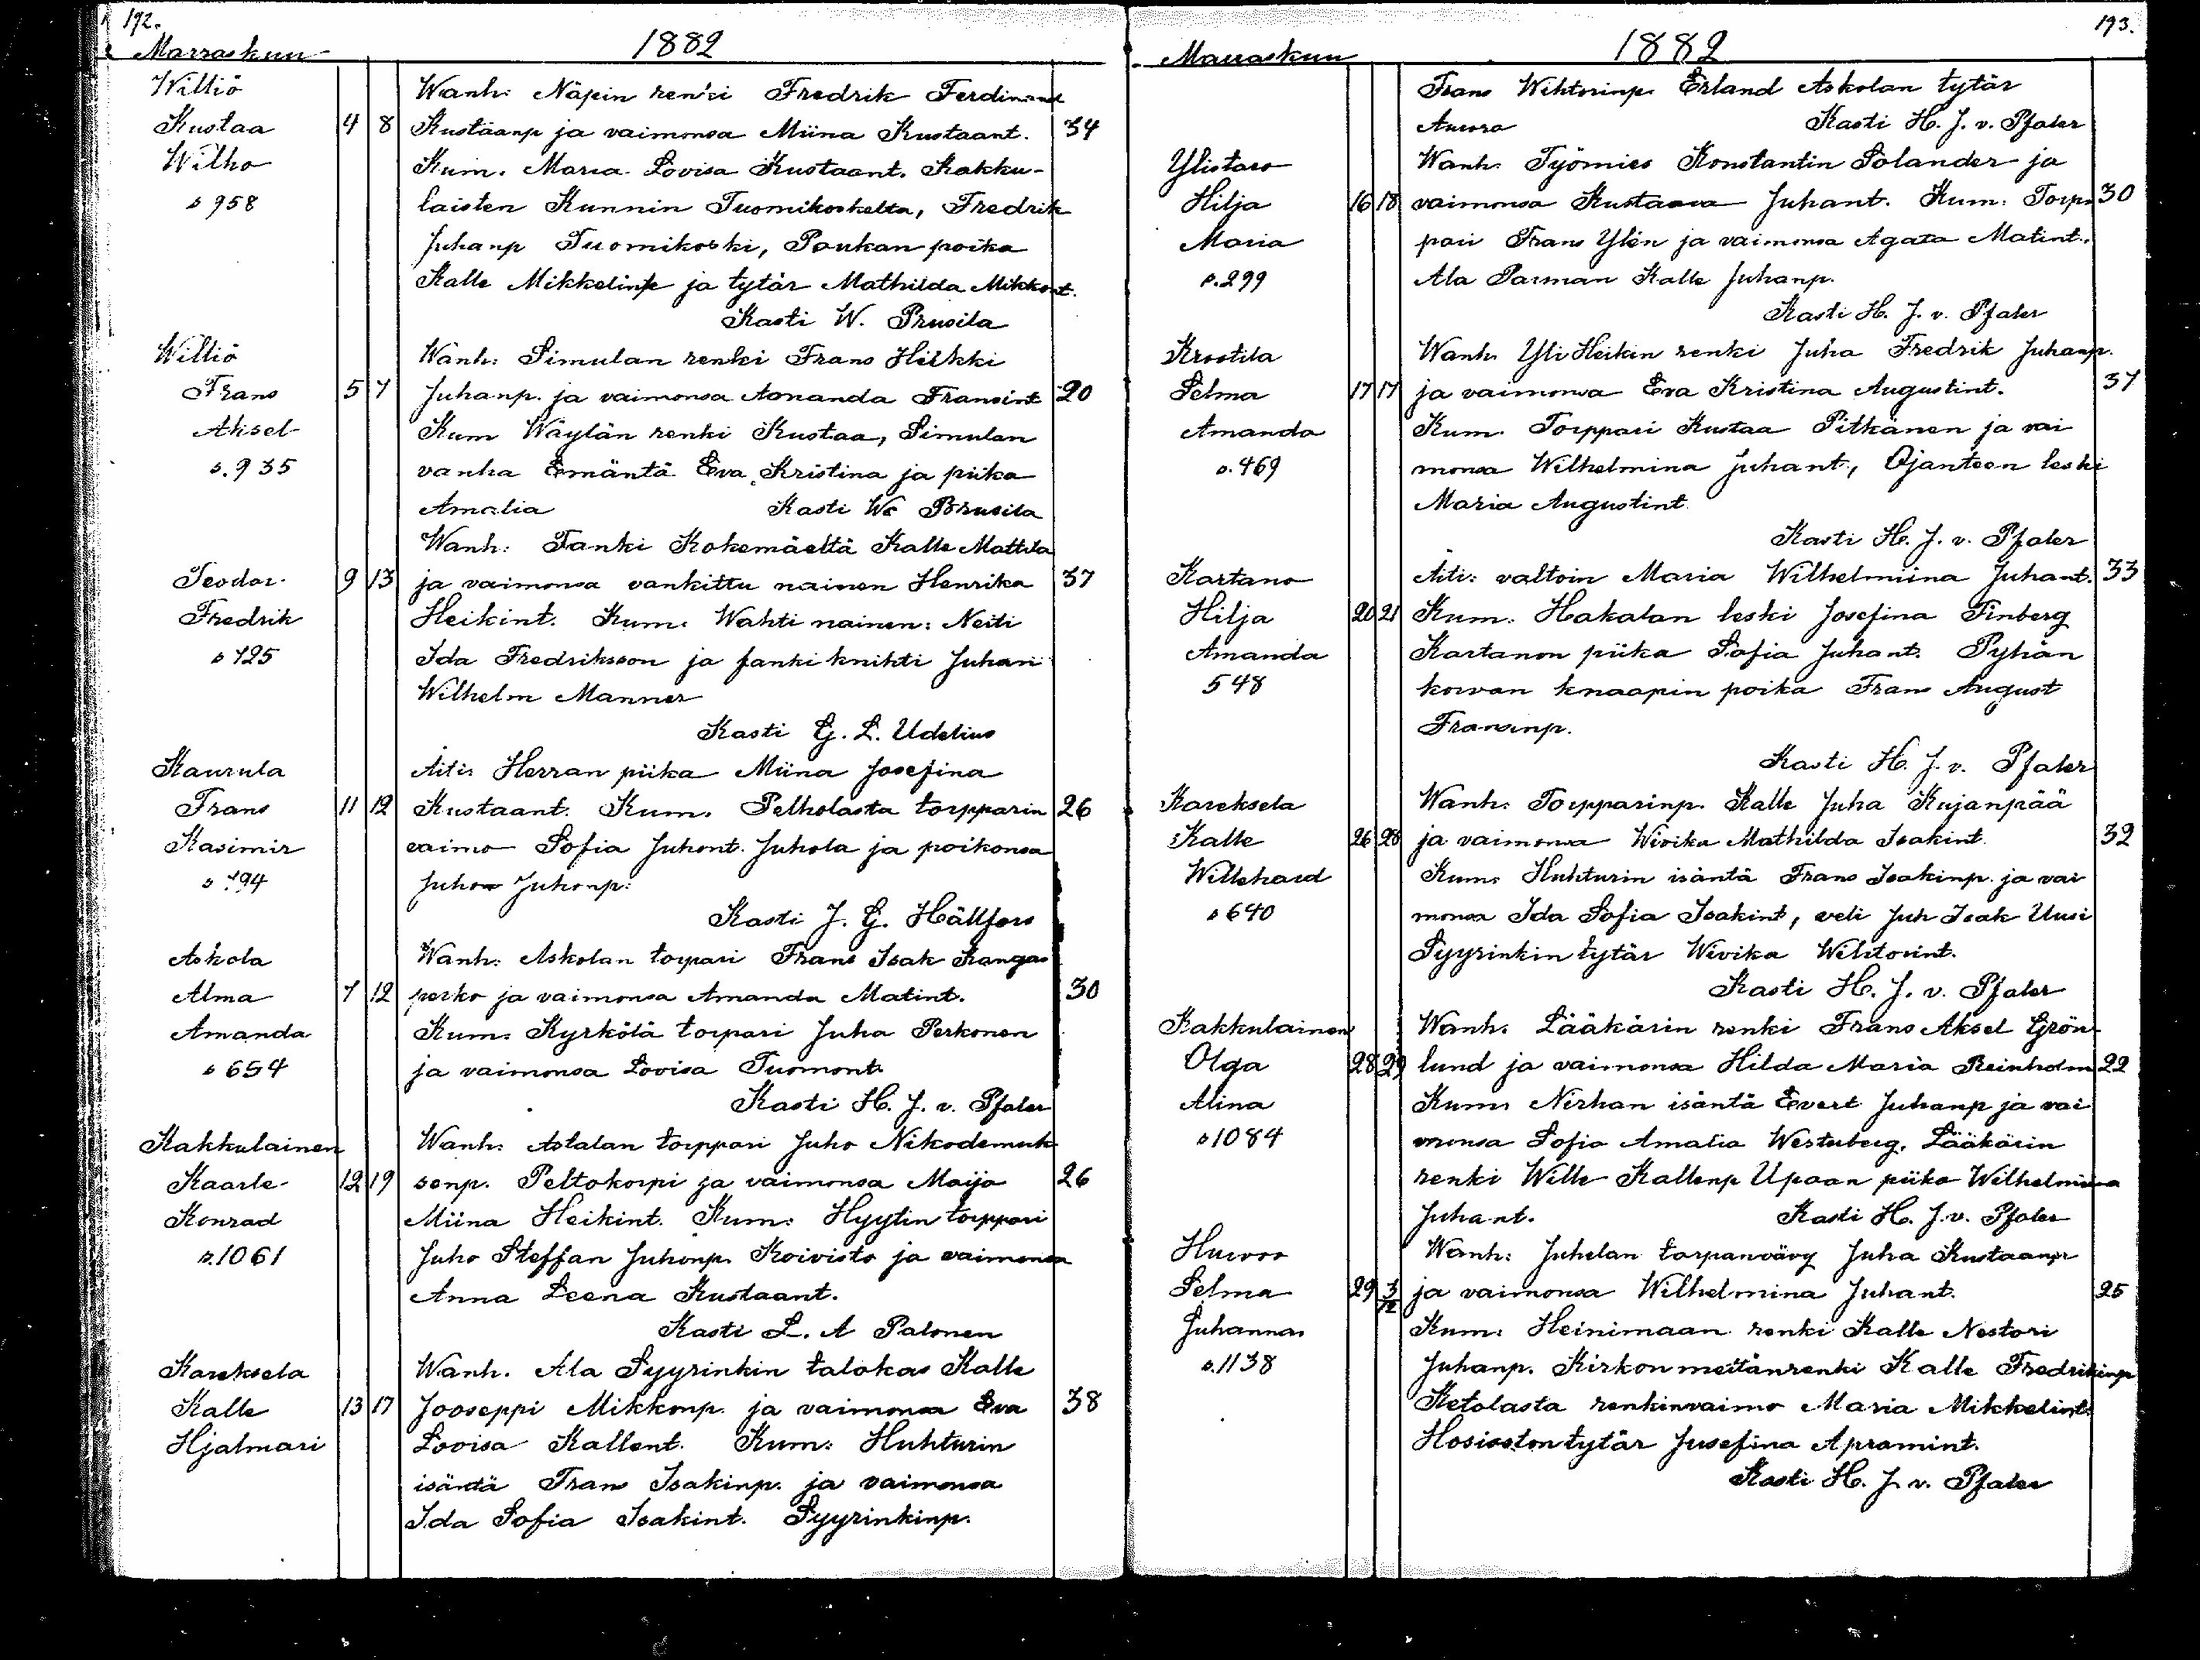 192.
Marraskun 1882
Williö Wanh: Näpin renki Fredrik Ferdinand
Kustaa 4 8 Kustaanp ja vaimonsa Miina Kustaant. 34
Wilho Kum. Maria Lovisa Kustaant. Kakku-
s 958 laisten Kunnin Tuomikoskelta, Fredrik
Juhanp Tuomikoski, Paukan poika
Kalle Mikkelinp ja tytär Mathilda Mikkont.
Kasti W. Prusila
Williö Wanh: Simulan renki Frans Heikki
Frans 5 7 Juhanp. ja vaimonsa Amanda Fransint 20
Aksel Kum Wäylän renki Kustaa, Simulan
s. 935 vanha Emäntä Eva Kristina ja piika
Amalia Kasti W. Prusila
Wanh: Fanki Kokemäeltä Kalle Mattila
Teodor 9 13 ja vaimonsa vankittu nainen Henrika 37
Fredrik Heikint. Kum. Wahti nainen: Neiti
s 725 Ida Fredriksson ja fanki knihti Juhan
Wilhelm Manner
Kasti G. L. Udelius
Kaurula Äiti: Herran piika Miina Josefina
Frans 11 12 Kustaant. Kum. Pelholasta torpparin 26
Kasimir vaimo Sofia Juhont. Juhola ja poikonsa
s 794 Juho Juhonp:
Kasti J. G. Hällfors
Askola Wanh: Askolan torpari Frans Isak Kangas
Alma 7 12 perko ja vaimonsa Amanda Matint. 30
Amanda Kum. Kyrkölä torpari Juha Perkonen
s 654 ja vaimonsa Lovisa Tuomont.
Kasti H. J. v. Pfaler
Kakkulainen Wanh: Astalan torppari Juho Nikodemuk
Kaarle 12 19 senp. Peltokorpi ja vaimonsa Maija 26
Konrad Miina Heikint. Kum: Hyytin torppari
s. 1061 Juho Steffan Juhonp. Koivisto ja vaimonsa
Anna Leena Kustaant.
Kasti L. A Palonen
Kareksela Wanh. Ala Syyrinkin talokas Kalle
Kalle 13 17 Jooseppi Mikkonp. ja vaimonsa Eva 38
Hjalmari Lovisa Kallent. Kum: Huhturin
isäntä Frans Isakinp. ja vaimonsa
Ida Sofia Isakint. Syyrinkinp.
193.
Marraskun 1882
Frans Wihtorinp. Erland Askolan tytär
Aurora Kasti H. J. v. Pfaler
Ylistaro Wanh. Työmies Konstantin Solander ja
Hilja 16 18 vaimonsa Kustaava Juhant. Kum: Torp 30
Maria pari Frans Ylén ja vaimonsa Agata Matint.
s. 299 Ala Parman Kalle Juhanp.
Kasti H. J. v. Pfaler
Krootila Wanh. Yli Heikin renki Juha Fredrik Juhanp.
Selma 17 17 ja vaimonsa Eva Kristina Augustint. 37
Amanda Kum. Torppari Kustaa Pitkänen ja vai
s. 469 monsa Wilhelmina Juhant, Ojanteen leski
Maria Augustint.
Kasti H. J. v. Pfaler
Kartano Äiti: valtoin Maria Wilhelmiina Juhant. 33
Hilja 20 21 Kum. Hakalan leski Josefina Finberg
Amanda Kartanon piika Sofia Juhant. Pyhän
548 korvan knaapin poika Frans August
Fransinp.
Kasti H. J. v. Pfaler
Kareksela Wanh. Torpparinp. Kalle Juha Kujanpää
Kalle 26 28 ja vaimonsa Wivika Mathilda Isakint. 32
Willehard Kum. Huhturin isäntä Frans Isakinp. ja vai
s 640 monsa Ida Sofia Isakint, veli Juh Isak Uusi
Syyrinkin tytär Wivika Wihtorint.
Kasti H. J. v. Pfaler
Kakkulainen Wanh. Lääkärin renki Frans Aksel Grön
Olga 28 29 lund ja vaimonsa Hilda Maria Reinholm 22
Alina Kum. Nirhan isäntä Evert Juhanp ja vai
s 1084 monsa Sofia Amalia Westerberg. Lääkärin
renki Wille Kallenp Upaan piika Wilhelmiina
Juhant. Kasti H. J. v. Pfaler
Hurvoo Wanh: Juhelan torpanvävy Juha Kustaanp
Selma 29 3/12 ja vaimonsa Wilhelmina Juhant. 25
Juhanna Kum: Heinimaan renki Kalle Nestori
s. 1138 Juhanp. Kirkon meitänrenki Kalle Fredrikinp
Ketolasta renkinvaimo Maria Mikkelint.
Hosioston tytär Jusefina Apramint.
Kasti H. J. v. Pfaler